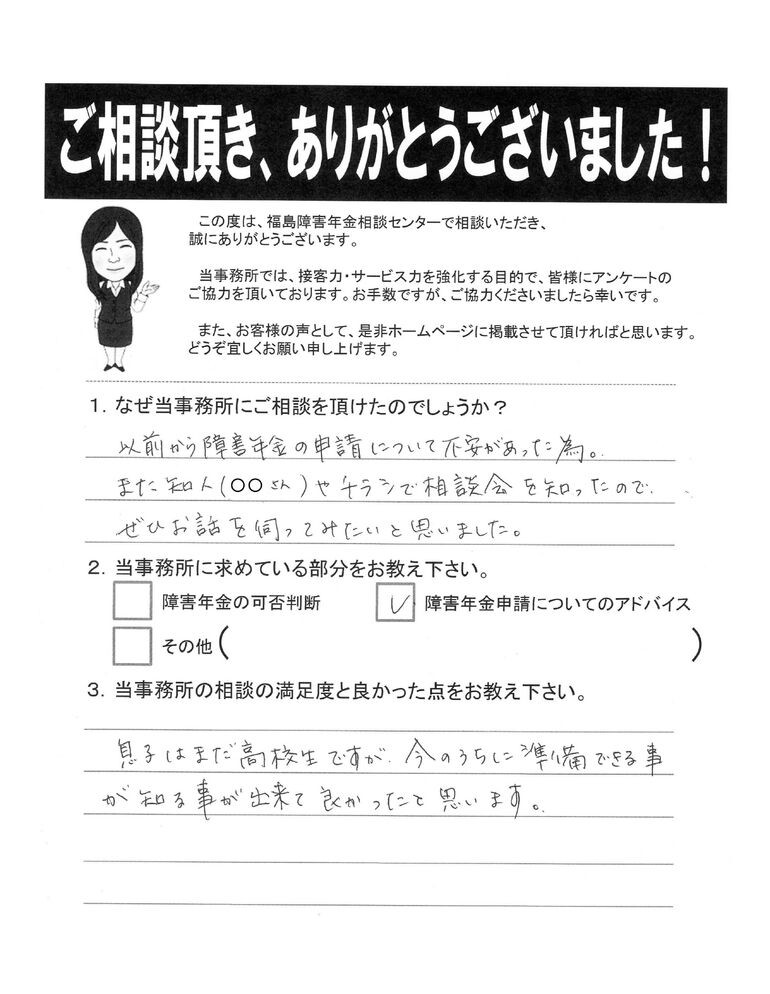 ご相談頂き、ありがとうございました！
この度は、福島障害年金相談センターで相談いただき、
誠にありがとうございます。
当事務所では、接客力・サービス力を強化する目的で、皆様にアンケートの
ご協力を頂いております。お手数ですが、ご協力くださいましたら幸いです。
また、お客様の声として、是非ホームページに掲載させて頂ければと思います。
どうぞ宜しくお願い申し上げます。
1．なぜ当事務所にご相談を頂けたのでしょうか？
以前から障害年金の申請について不安があった為。
また知人（〇〇さん）やチラシで相談会を知ったので、
ぜひお話を伺ってみたいと思いました。
2．当事務所に求めている部分をお教え下さい。
障害年金の可否判断 ✓ 障害年金申請についてのアドバイス
その他（ ）
3．当事務所の相談の満足度と良かった点をお教え下さい。
息子はまだ高校生ですが、今のうちに準備できる事
が知る事が出来て良かったと思います。